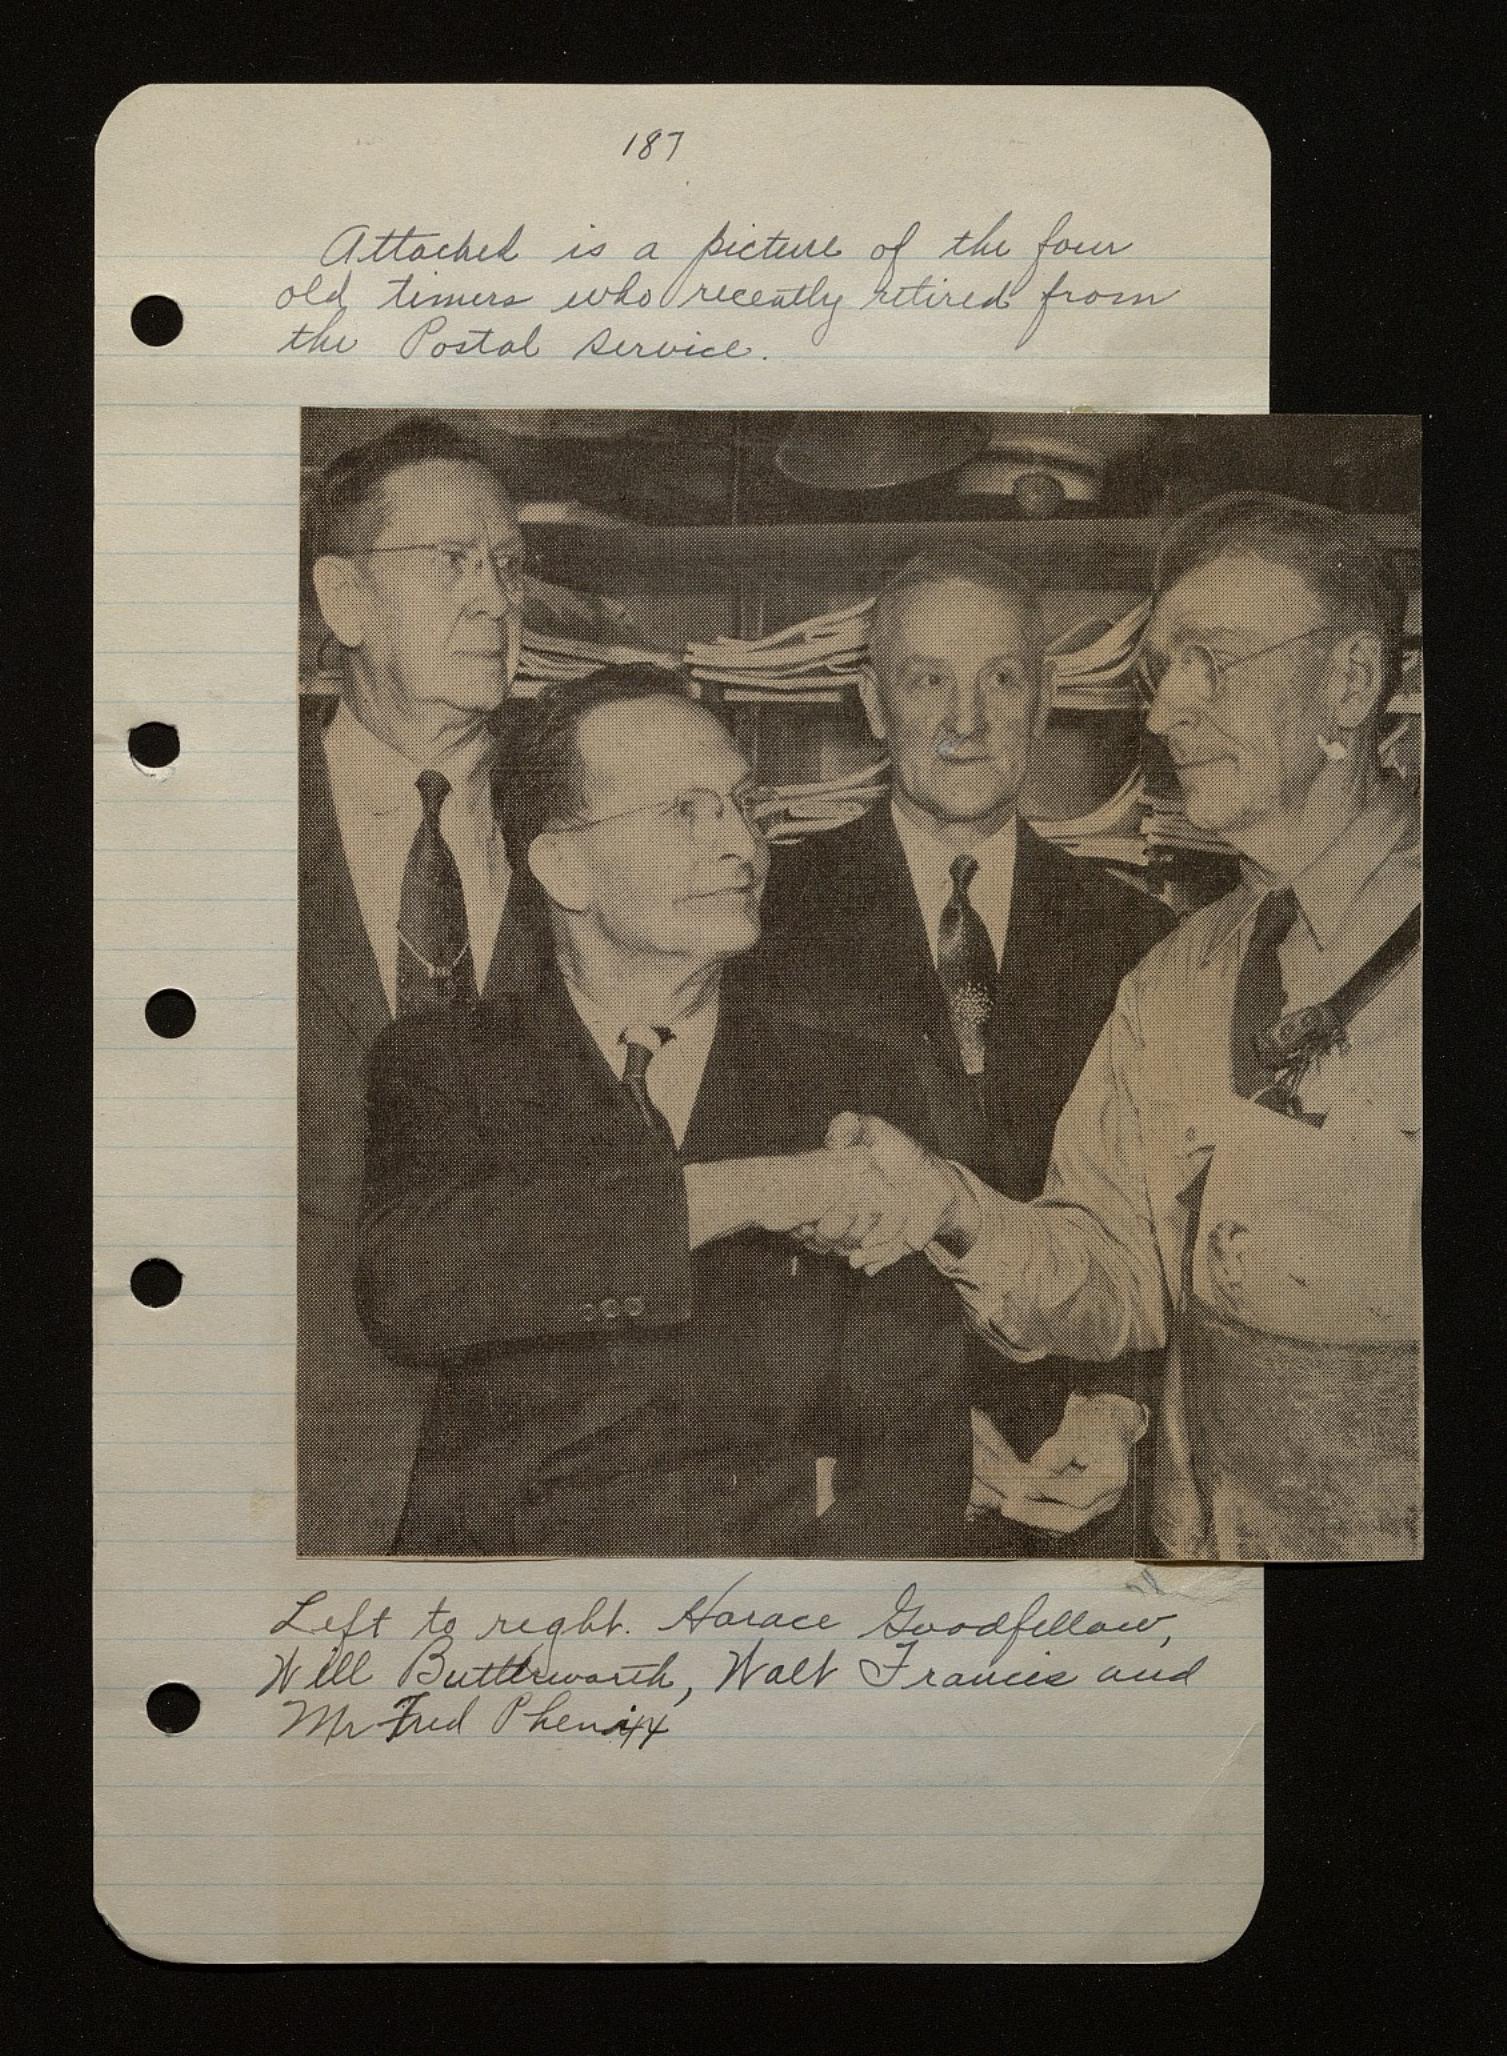 187
Attached is a picture of the four
old timers who recently retired from
the Postal Service.
Left to right. Horace Goodfellow,
Will Butterworth, Walt Francis and
Mr Fred Phenix